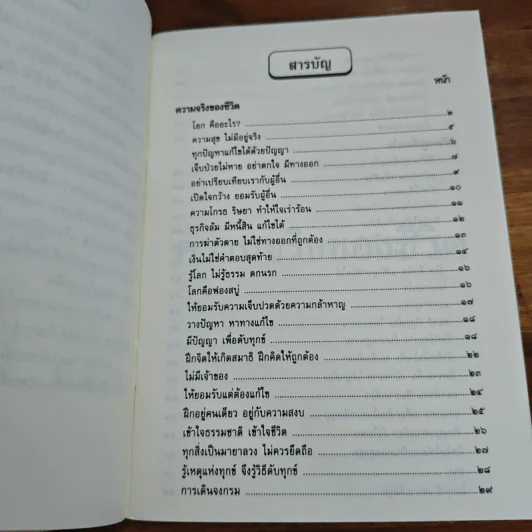 สารบัญ
หน้า
ความจริงของชีวิต
โลก คืออะไร? ๒
ความสุข ไม่มีอยู่จริง ๕
ทุกปัญหาแก้ไขได้ด้วยปัญญา ๖
เจ็บป่วยไม่หาย อย่าตกใจ มีทางออก ๗
อย่าเปรียบเทียบเรากับผู้อื่น ๙
เปิดใจกว้าง ยอมรับผู้อื่น ๑๐
ความโกรธ ริษยา ทำให้ใจเร่าร้อน ๑๑
ธุรกิจล้ม มีหนี้สิน แก้ไขได้ ๑๒
การฆ่าตัวตาย ไม่ใช่ทางออกที่ถูกต้อง ๑๓
เงินไม่ใช่คำตอบสุดท้าย ๑๔
รู้โลก ไม่รู้ธรรม ตกนรก ๑๖
โลกคือฟองสบู่ ๑๖
ให้ยอมรับความเจ็บปวดด้วยความกล้าหาญ ๑๗
วางปัญหา หาทางแก้ไข ๑๘
มีปัญญา เพื่อดับทุกข์ ๑๘
ฝึกจิตให้เกิดสมาธิ ฝึกคิดให้ถูกต้อง ๒๒
ไม่มีเจ้าของ ๒๓
ให้ยอมรับแต่ต้องแก้ไข ๒๔
ฝึกอยู่คนเดียว อยู่กับความสงบ ๒๕
เข้าใจธรรมชาติ เข้าใจชีวิต ๒๖
ทุกสิ่งเป็นมายาลวง ไม่ควรยึดถือ ๒๗
รู้เหตุแห่งทุกข์ จึงรู้วิธีดับทุกข์ ๒๘
การเดินจงกรม ๒๙